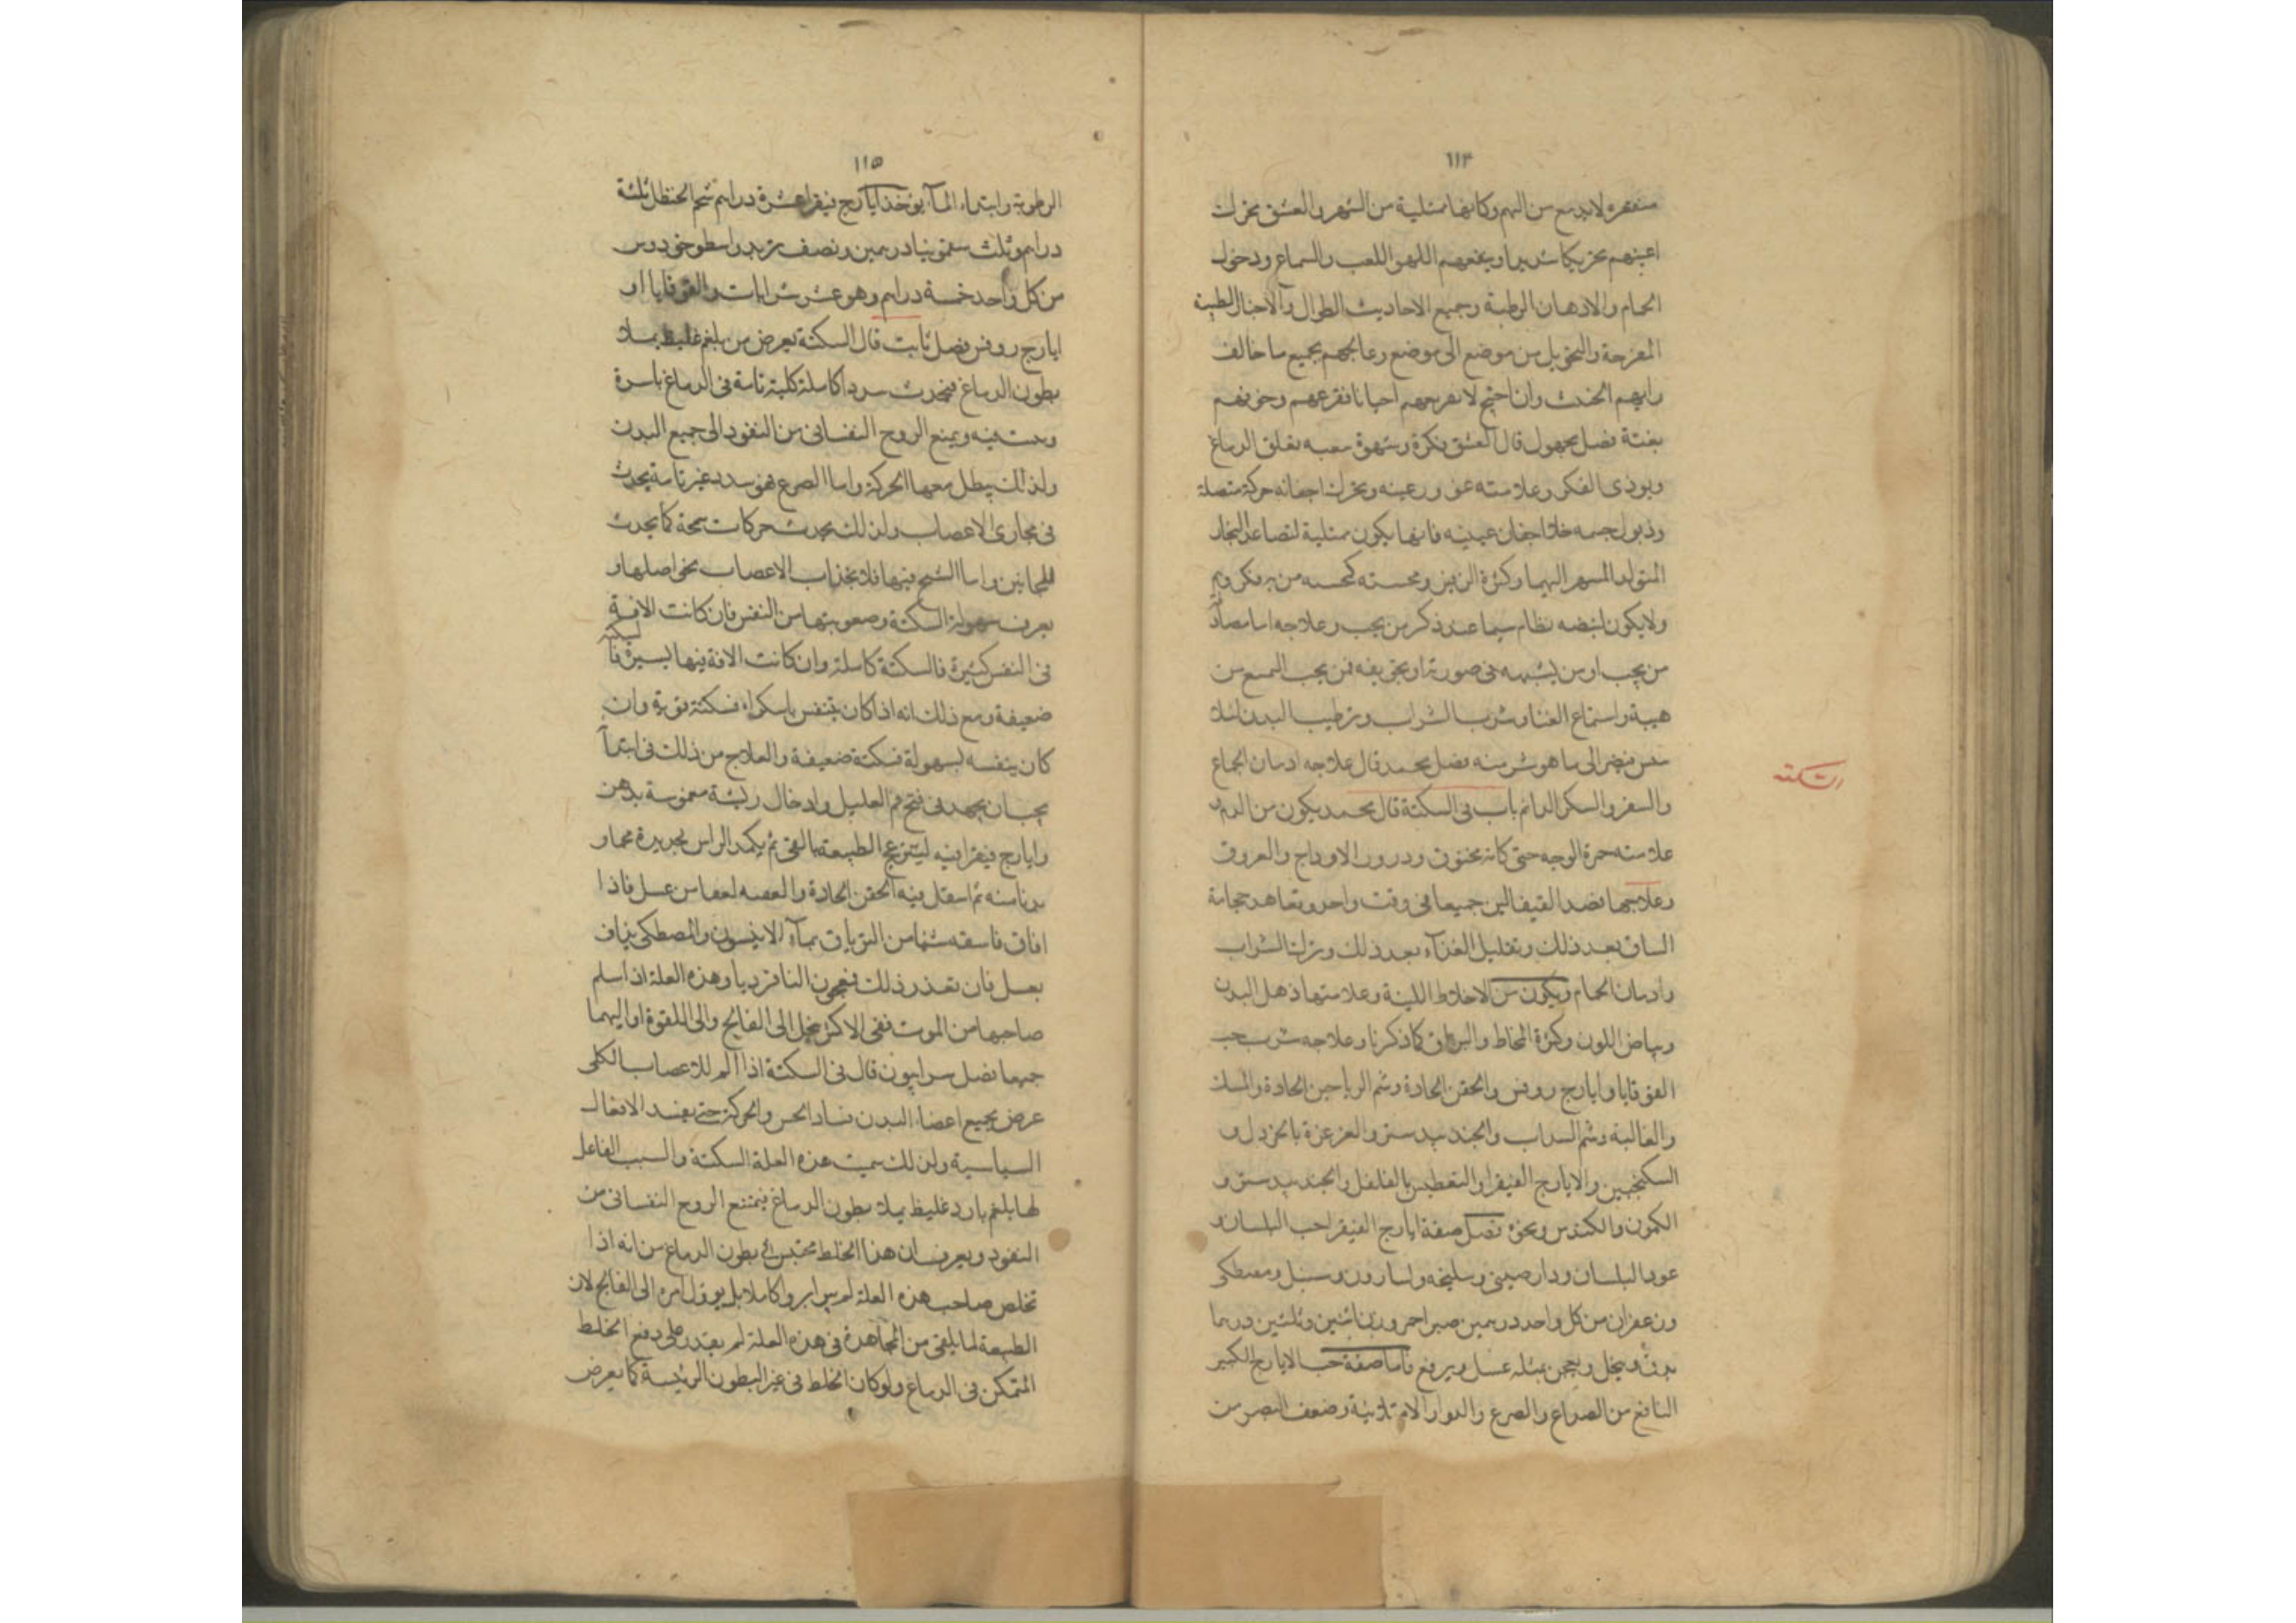 ١١٤
لا يدمع من الهم وكانها ممتلية من السهر والعشق بحرك
اعينهم وينفعهم اللهو اللعب والسماع ودخول
الحمام والادهان الرطبة وجميع الاحاديث الطوال والاخبار الطيبة
المفرحة والتحويل من موضع الى موضع وعالجهم بجميع ما خالف
رايهم الخبث وان احتيج احيانا فقرعهم وخوفهم
بغتة فصل مجهول قال العشق فكرة وشهوة صعبه تقلق الدماغ
ويوذى الفكر وعلامته غور عينه وتحرك اجفانه حركة متصلة
وذبول جسمه خلا اجفان عينيه فانها يكون ممتلية لتصاعد البخار
المتولد السهر اليها وكثرة الزفير ومجسته كمجسه من به فكر وهم
ولا يكون لنبضه نظام سيما عند ذكر من يحب وعلاجه اما مصادقة
من يحب او من يشبهه فى صورته او تخويفه ممن يحب
هيبة واستماع الغنا وشرب الشراب وترطيب البدن لئلا
الى ما هو شر منه فصل محمد قال علاجه ادمان الجماع
والسفر والسكر الدائم باب فى السكتة قال محمد يكون من الدم و
السكته
علامته حمرة الوجه حتى كانه مخنوق ودرور الاوداج والعروق
وعلاجها فصد القيفالين جميعا فى وقت واحد وتعاهد حجامة
الساق بعد ذلك وتقليل الغذآء بعد ذلك وترك الشراب
وادمان الحمام ويكون من الاخلاط اللينة وعلامتها البدن
وبياض اللون وكثرة المخاط والبزاق كما ذكرنا وعلاجه شرب حب
القوقايا وايارج روفس والحقن الحادة وشم الرياحين الحادة والمسك
والغالية وشم السداب والجندبيدستر والغرغرة بالخردل و
السكنجبين والايارج الفيقرا والتعطيس بالفلفل والجندبيدستر و
الكمون والكندس ونحوه فصل صفة ايارج الفيقرا حب البلسان و
عود البلسان ودارصينى وسليخه واسارون وسنبل ومصطكى
وزعفران من كل واحد درهمين صبر احمر وزن اثنين وثلثين درهما
يدق وينخل ويعجن بمثله عسل ويرفع فاما صفة حب الايارج الكبير
النافع من الصداع والصرع والدوار الامتلائية وضعف البصر من
١١٥
الرطوبة وابتداء المآء يوخذ ايارج فيقرا عشرة دراهم شحم الحنظل ثلثة
دراهم وثلث سقمونيا درهمين ونصف تربد واسطوخودوس
من كل واحد خمسة دراهم وهو عشر شرابات والقوقايا او
ايارج روفس فصل ثابت قال السكتة يعرض من بلغم غليظ يملا
بطون الدماغ فيحدث سددا كاملة كلية تامة فى الدماغ باسره
ويمنع الروح النفسانى من النفوذ الى جميع البدن
ولذلك يبطل معها الحركة واما الصرع فهو سدد غير تامة يحدث
فى مجارى الاعصاب ولذلك يحدث حركات سمجة كما يحدث
للمجانين واما التشنج فيها فلانجذاب الاعصاب نحو اصلها و
يعرف سهولة السكتة وصعوبتها من النفس فان كانت الافة
فى النفس كثيرة فالسكتة كاملة وان كانت الافة فيها يسيرة فالسكتة
ضعيفة ومع ذلك انه اذا كان يتنفس باستكراه فسكتة قوية وان
كان يتنفسه بسهولة فسكتة ضعيفة والعلاج من ذلك فى ابتدآ
يجب ان يجهد فى فتح فم العليل وادخال ريشة مغموسة بدهن
وايارج فيقرا فيه لينزعج الطبيعة بالقى ثم يكمد الراس بحديدة محماة
يدنا منه ثم استعمل فيه الحقن الحادة من عسل فاذا
افاق فاسقه شيا من الترياق بمآء الانيسون والمصطكى يداف
بعسل فان تعذر ذلك فمعجون النافرديا وهذه العلة اذا سلم
صاحبها من الموت ففى الاكثر ينحل الى الفالج والى اللقوة او اليهما
جميعا فصل سرابيون قال فى السكتة اذا الم للاعصاب الكلى
عرض بجميع اعضاء البدن فساد الحس والحركة حتى يفسد الافعال
السياسية ولذلك سميت هذه العلة السكتة والسبب الفاعل
لها بلغم بارد غليظ يملا بطون الدماغ فيمتنع الروح النفسانى من
النفوذ ويعرف ان هذا الخلط محتبس فى بطون الدماغ من انه اذا
تخلص صاحب هذه العلة لم يبرا برواً كاملا بل يوول امره الى الفالج لان
الطبيعة لما يلقى من المجاهدة فى هذه العلة لم يقدر على دفع الخلط
المتمكن فى الدماغ ولو كان الخلط فى غير البطون الرئيسة كما يعرض